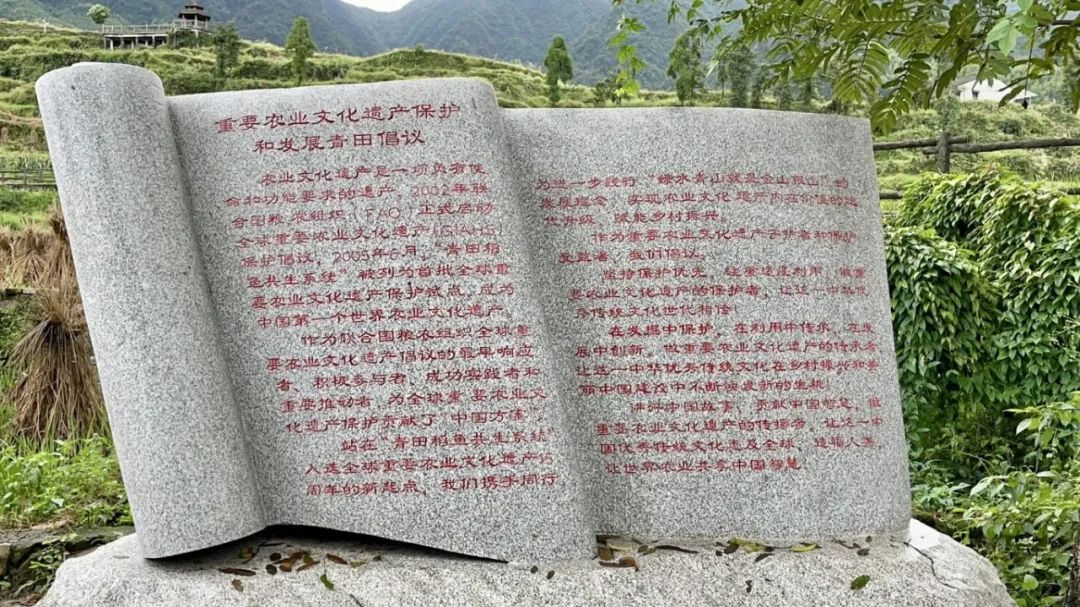 重要农业文化遗产保护
和发展青田倡议
农业文化遗产是一项负有使
命和功能要求的遗产，2002年联
合国粮农组织（FAO）正式启动
全球重要农业文化遗产(GIAHS)
保护倡议，2005年6月，“青田稻
鱼共生系统”被列为首批全球重
要农业文化遗产保护试点，成为
中国第一个世界农业文化遗产。
作为联合国粮农组织全球重
要农业文化遗产倡议的最早响应
者、积极参与者、成功实践者和
重要推动者，为全球重要农业文
化遗产保护贡献了“中国方案”。
站在“青田稻鱼共生系统”
入选全球重要农业文化遗产
周年的新起点，我们携手同行，
为进一步践行“绿水青山就是金山银山”的
发展理念，实现农业文化遗产内在价值的迭
代升级，赋能乡村振兴。
作为重要农业文化遗产守护者和保护
受益者，我们倡议。
坚持保护优先，注重适度利用，做重
要农业文化遗产的保护者，让这一中华优
秀传统文化世代相传！
在发掘中保护，在利用中传承，在发
展中创新，做重要农业文化遗产的传承者
让这一中华优秀传统文化在乡村振兴和美
丽中国建设中不断焕发新的生机！
讲好中国故事，贡献中国智慧，做
重要农业文化遗产的传播者，让这一中
国优秀传统文化惠及全球，造福人类，
让世界农业共享中国智慧！